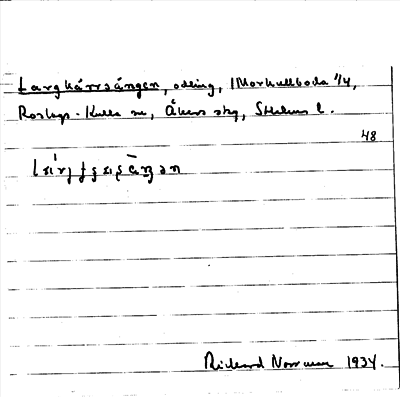 Largkärrsängen, odling, Morkullboda 1/4,
Roslags-Kulla sn, Åkers skg, Sthlms l.
48
Richard Norrman 1934.